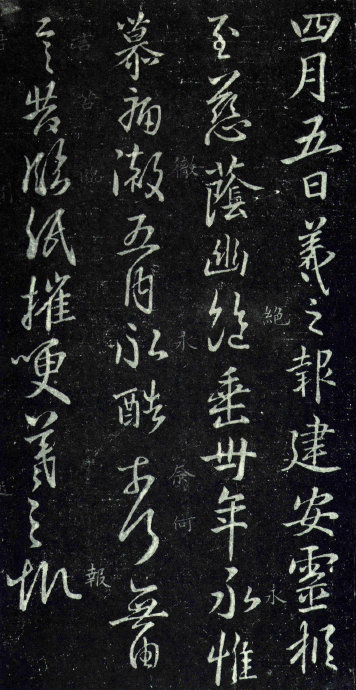 四月五日羲之報建安靈柩
絕
永
至慈蔭幽絕垂卅年永惟
徹
永
奈何
慕痛徹五內永酷奈何無由
苦
報
言苦臨紙摧哽羲之報